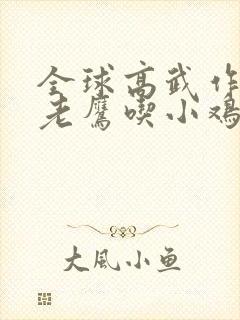 全球高武 作
老鹰喫小鸡
大风小鱼